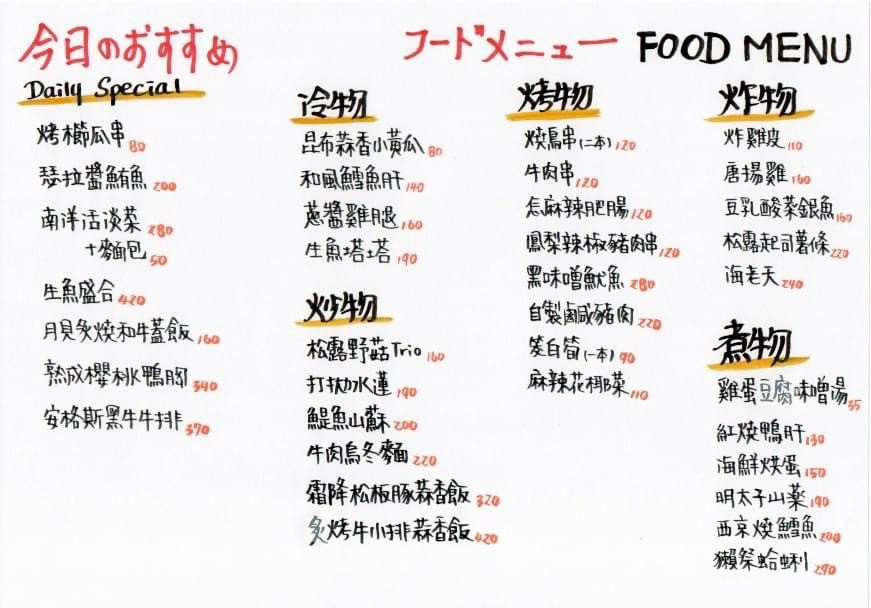 今日のおすすめ
Daily Special
烤櫛瓜串 80
瑟拉醬鮪魚 200
南洋活淡菜 280
+麵包 50
生魚盛合 420
月貝炙燒和牛蓋飯 160
熟成櫻桃鴨胸 340
安格斯黑牛牛排 370
フードメニュー FOOD MENU
冷物
昆布蒜香小黃瓜 80
和風鱈魚肝 140
蔥醬雞腿 160
生魚塔塔 190
炒物
松露野菇Trio 160
打拋水蓮 190
鯷魚山蘇 200
牛肉烏冬麵 220
霜降松板豚蒜香飯 320
炙烤牛小排蒜香飯 420
烤物
燒鳥串(二本) 120
牛肉串 120
怎麻辣肥腸 120
鳳梨辣椒豬肉串 120
黑味噌魷魚 280
自製鹹豬肉 220
筊白筍(一本) 90
麻辣花椰菜 110
炸物
炸雞皮 110
唐揚雞 160
豆乳酸菜銀魚 160
松露起司薯條 220
海老天 240
煮物
雞蛋豆腐味噌湯 55
紅燒鴨肝 130
海鮮烘蛋 150
明太子山藥 190
西京燒鱈魚 240
獺祭蛤蜊 290